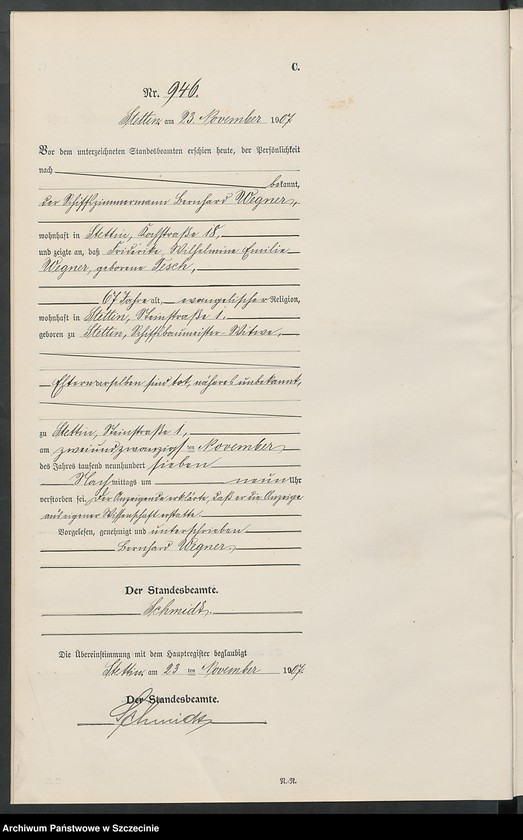 C.
Nr. 946.
Stettin, am 23. November 1907
Vor dem unterzeichneten Standesbeamten erschien heute, der Persönlichkeit
nach
bekannt,
der Schiffszimmermann Bernhard Wegner,
wohnhaft in Stettin, Kochstraße 18,
und zeigte an, daß Friderike Wilhelmine Emilie
Wegner, geborene Tesch,
67 Jahre alt, evangelischer Religion,
wohnhaft in Stettin, Steinstraße 1.
geboren zu Stettin, Schiffsbaumeister-Witwe,
Eltern derselben sind tot, näheres unbekannt,
zu Stettin, Steinstraße 1,
am zweiundzwanzigsten November
des Jahres tausend neunhundert sieben
Nachmittags um neun Uhr
verstorben sei. Der Anzeigende erklärte, daß er die Anzeige
aus eigener Wissenschaft erstatte.
Vorgelesen, genehmigt und unterschrieben
Bernhard Wegner.
Der Standesbeamte.
Schmidt.
Die Übereinstimmung mit dem Hauptregister beglaubigt
Stettin, am 23 ten November 1907.
Der Standesbeamte.
Schmidt
N.-N.
Archiwum Państwowe w Szczecinie